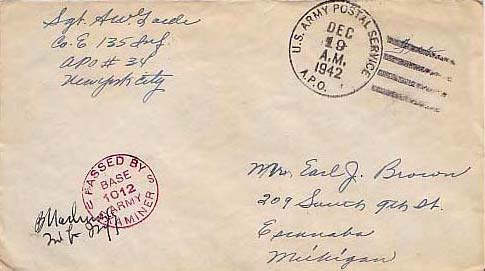 Sgt. A W
Co. E 135 Inf.
APO # 34
New York City
U.S. ARMY POSTAL SERVICE
DEC
19
A.M.
1942
A.P.O.
PASSED BY
BASE
1012
ARMY
EXAMINER
Mr. Earl J. Brown
209 South 9th St.
Escanaba
Michigan